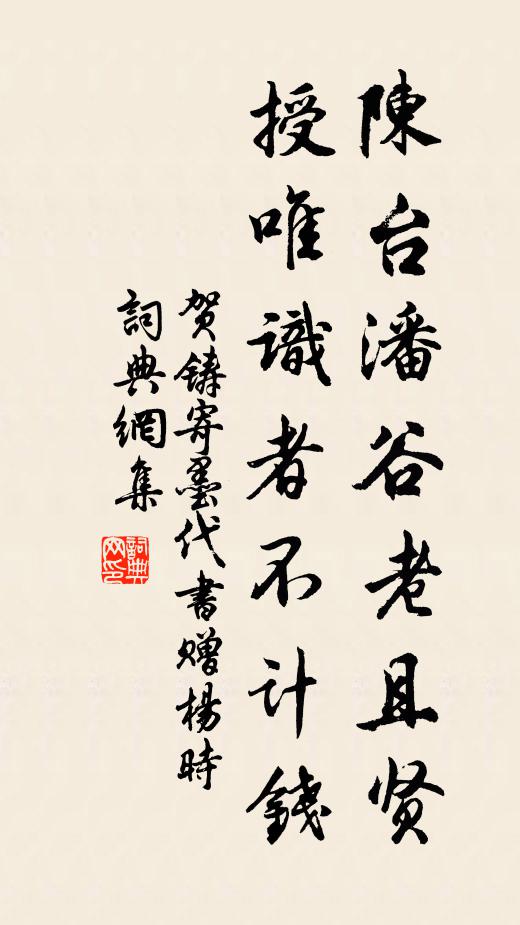 陳台潘谷老且贤
授唯識者不计錢
贺鑄寄墨代書赠楊時
詞典網集
詞典网印